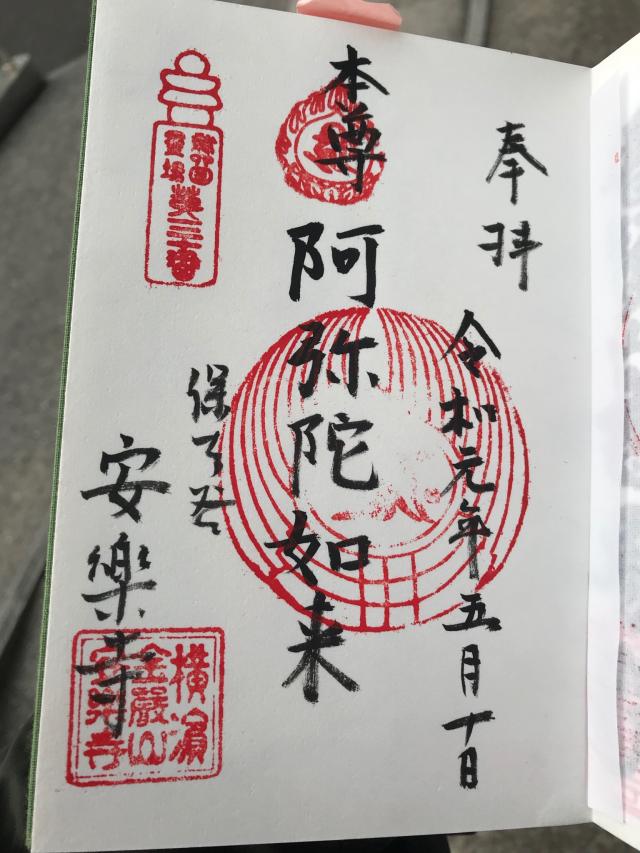 奉拝
令和元年五月十日
本尊
阿弥陀如来
安樂寺
霊場
第三番
横濱
金巖山
安樂寺